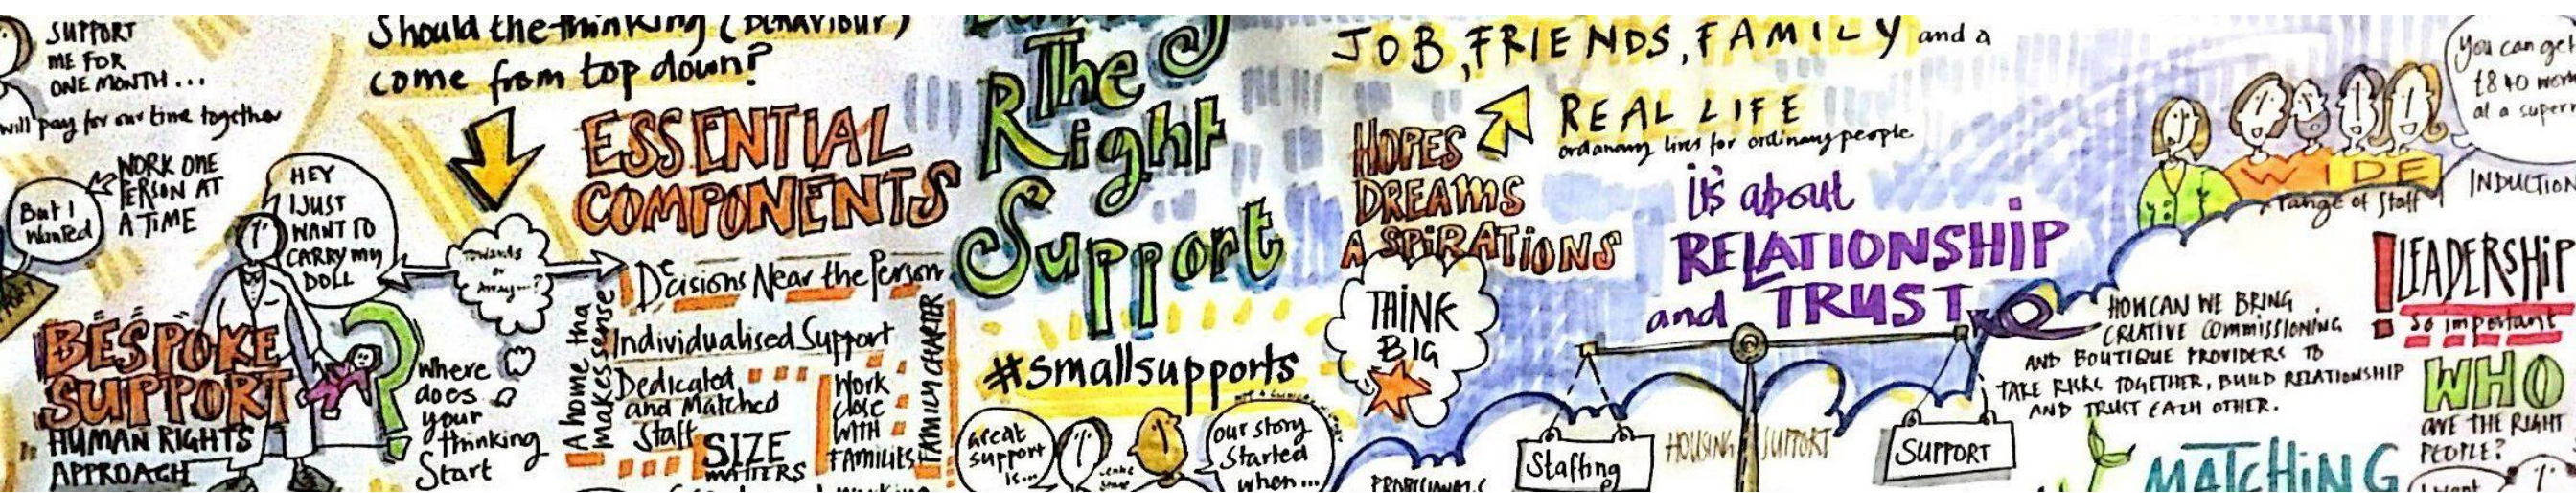 SUPPORT
ME FOR
ONE MONTH...
will pay for our time together
WORK ONE
PERSON AT
A TIME
But I
Wanted
HEY
I JUST
WANT TO
CARRY MY
DOLL
BESPOKE
SUPPORT
HUMAN RIGHTS
APPROACH
Should the thinking (behaviour)
come from top down?
Towards
or
Away...?
Where
does
your
thinking
Start
ESSENTIAL
COMPONENTS
Decisions Near the Person
A home tha
makes sense
Individualised Support
Dedicated
and Matched
Staff
SIZE
MATTERS
Work
close
WITH
FAMILIES
FAMILY CHARTER
The
Right
Support
#smallsupports
Great
support
is...
our story
Started
when...
JOB, FRIENDS, FAMILY and a
REAL LIFE
ordanary lives for ordinary people
HOPES
DREAMS
ASPIRATIONS
THINK
BIG
it's about
RELATIONSHIP
and TRUST
Staffing
HOUSING
SUPPORT
SUPPORT
PROFESSIONALS
WIDE
range of Staff
You can get
£8.40
at a
INDUCTION
HOW CAN WE BRING
CREATIVE COMMISSIONING
AND BOUTIQUE PROVIDERS TO
TAKE RISKS TOGETHER, BUILD RELATIONSHIP
AND TRUST EACH OTHER.
!LEADERSHIP
So important
WHO
ARE THE RIGHT
PEOPLE?
MATCHING
I want